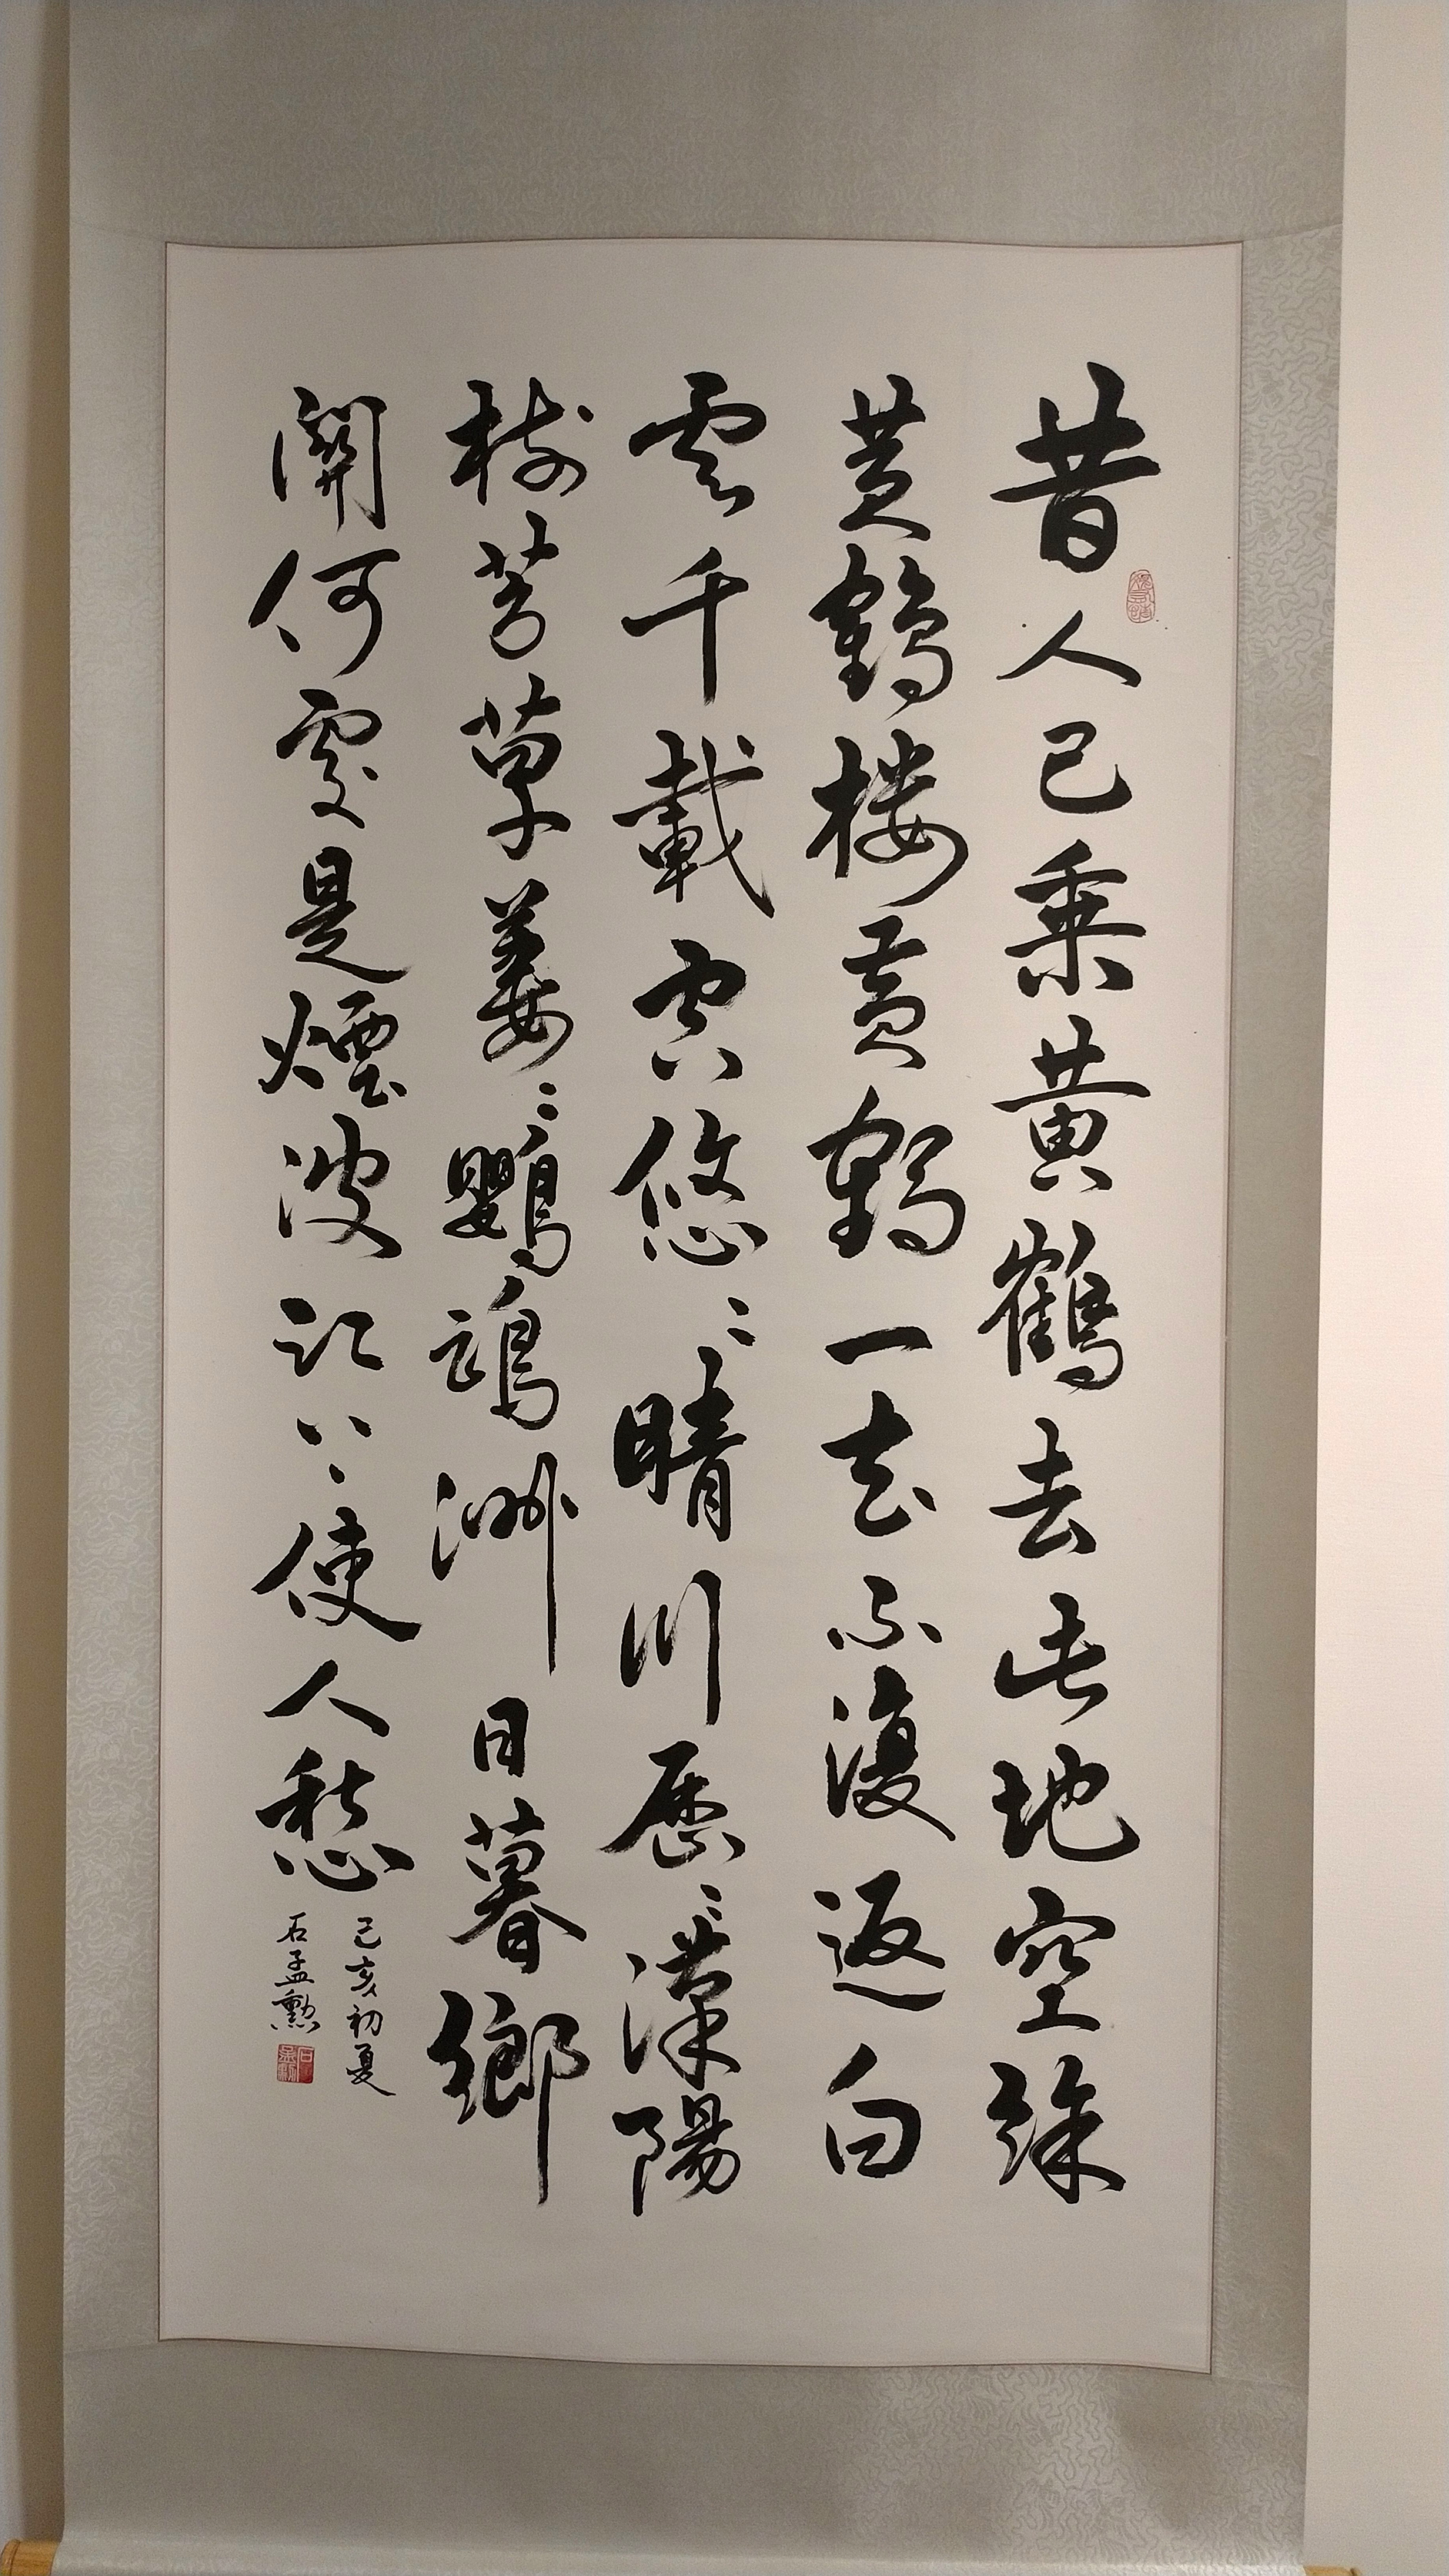 昔人已乘黄鶴去此地空餘
黄鶴楼黄鶴一去不復返白
雲千載空悠〻晴川歷〻漢陽
樹芳草萋〻鸚鵡洲日暮鄉
關何處是煙波江上使人愁
己亥初夏
石孟勲